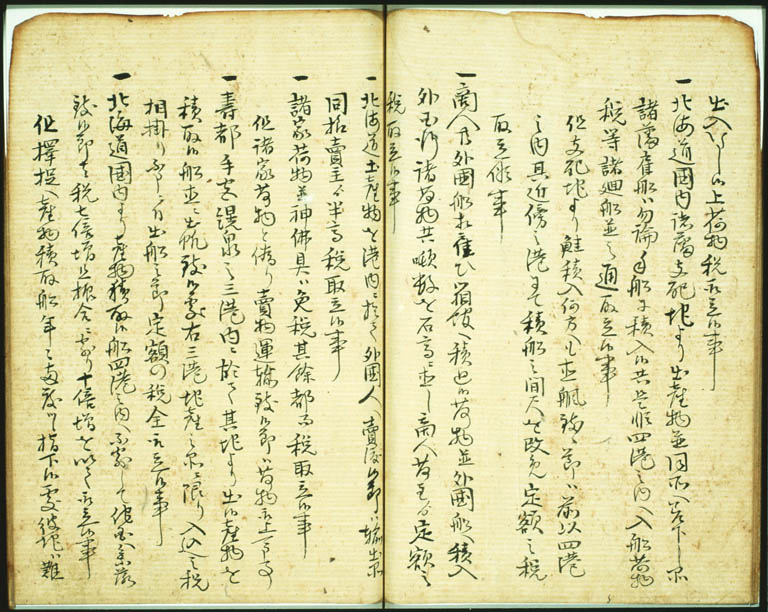 出入いたし候上荷物税取立候事
一北海道国内諸藩支配地より出産物並同所へ差下し品
諸藩雇船ハ勿論手船ニ而積入候共是亦四港之内へ入船荷物
税等諸廻船並之通取立候事
但支配地より鮭積入何方へも出帆致候節ハ前以四港
之内其近傍之港ニ而積船之間尺を改免定額之税
取立候事
一商人共外国船相雇ひ箱館へ積込候荷物並外国船へ積入
外国行諸荷物共噸数を石高ニ直し商人荷主より定額之
税取立候事
一北海道土産物を港内ニ於て外国人へ売渡候節ハ輸出品
同様売主より半高税取立候事
一諸家荷物並神佛具ハ免税其余都而税取立候事
但諸家荷物と偽り売物運輸致候節ハ荷物取上可申事
一寿都手宮幌泉之三港内ニ於て其地より出候産物を
積取候船直ニ出帆致候節右三港地産之品ニ限り入込之税
相掛り不申候出船之節定額の税金取立候事
一北海道国内より産物積取候船四港之内へ不寄して他国へ乗落
致候節ハ税七倍増尤振合ニ寄り十倍増を以て取立候事
但択捉入産物積取船年々両度ツヽ指下候処彼地ハ難